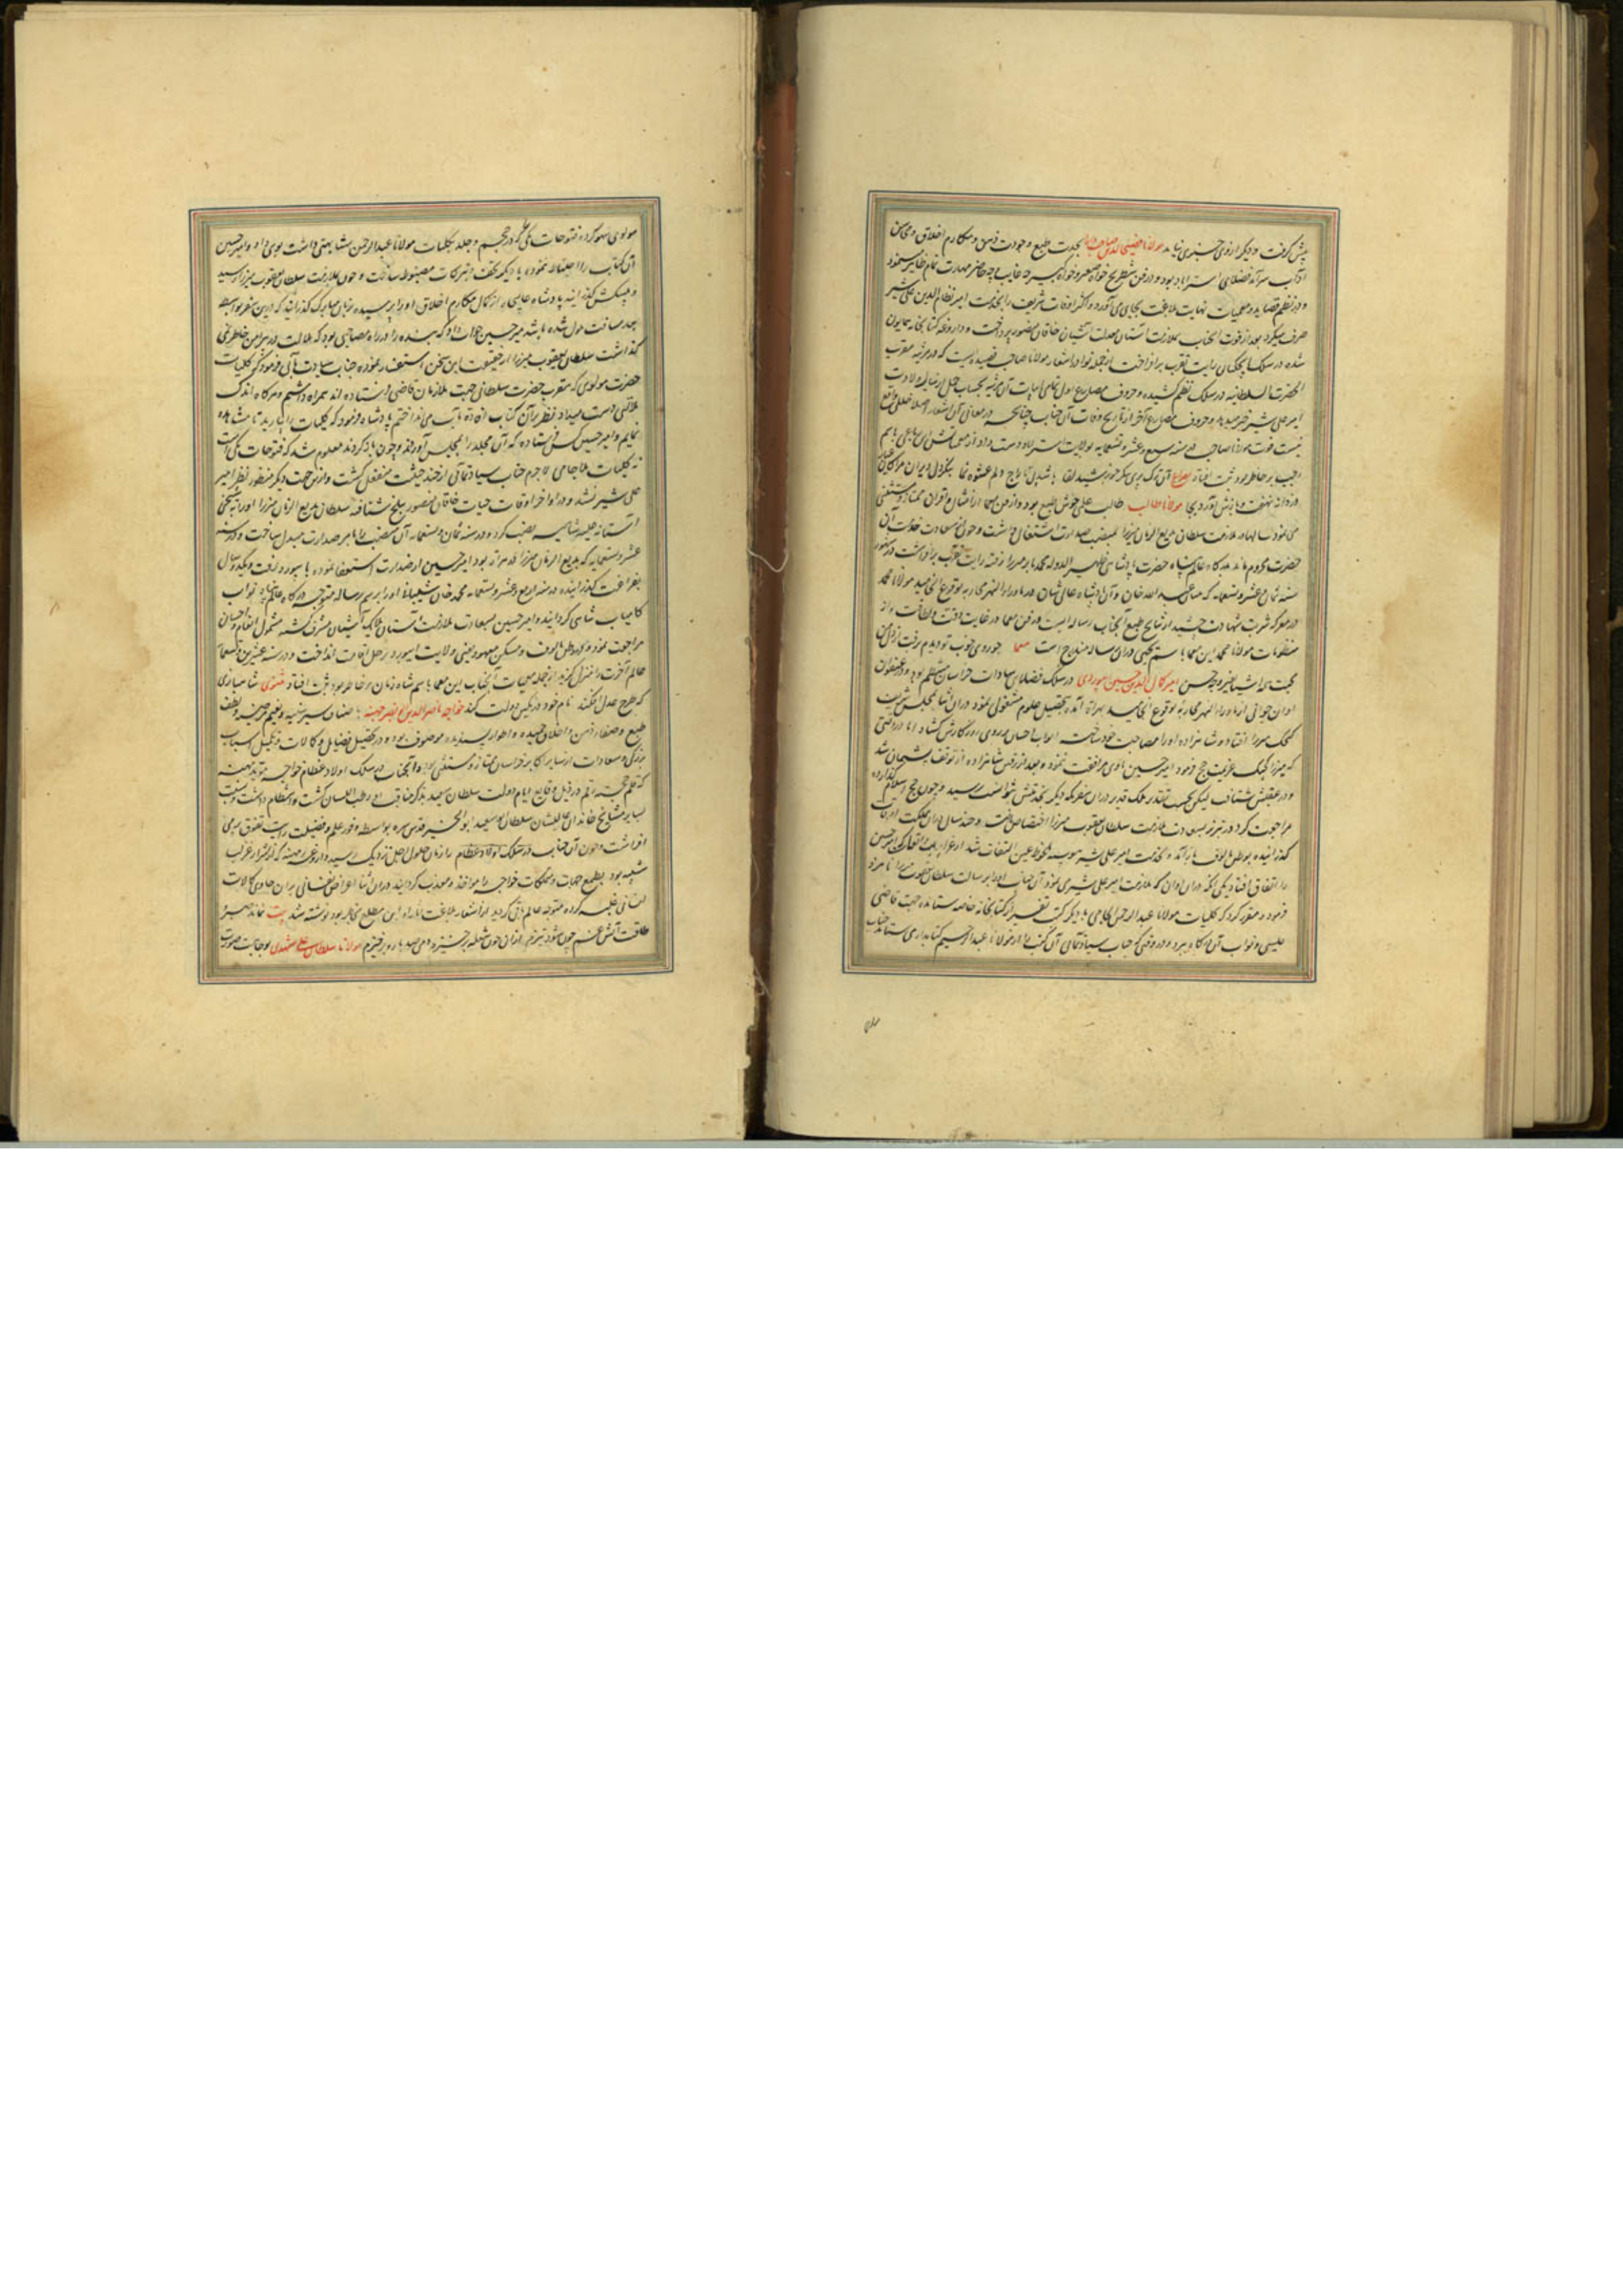 پیش گرفت و دیگر ازوی خبری نیامد مولانا فصیح الدین صاحب دارا بحدت طبع وجودت ذهن ومکارم اخلاق ومحاسن
آداب سرآمد فضلای استراباد بود ودر فن شطرنج خواه صغیر وخواه کبیر چه غایب وچه حاضر مهارت تمام ظاهر مینمود
ودر نظم قصاید ومعمیات نهایت بلاغت بجای می آورد واکثر اوقات شریف را بخدمت امیر نظام الدین علی شیر
صرف میکرد بعد از فوت آنجناب بملازمت آستان معدلت آشیان خاقان منصور پرداخت وداروغه کتابخانه همایون
شده در سلک ایچکیان رایت تقرب برافراخت ازجمله نوادر اشعار مولانا صاحب قصیده ایست که در مرثیه مقرب
الحضرت السلطانیه در سلک نظم کشیده وحروف مصراع اول تمامی ابیات آن مرثیه بحساب جمل از سال ولادت
امیر علی شیر خبر میدهد وحروف مصراع آخر از تاریخ وفات آن جناب چنانچه در معانی آن اشعار اصلا خللی واقع
نیست فوت مولانا صاحب در سنه سبع وعشر وتسعمایه بولایت استراباد دست داد
مولانا طالب طالب علمی خوش طبع بود ودر فن معما از امثال واقران ممتاز ومستثنی
می نمود سالها در ملازمت سلطان بدیع الزمان میرزا بمنصب صدارت اشتغال داشت وچون از سعادت خدمت آن
حضرت محروم ماند بدرگاه عالم پناه حضرت پادشاهی ظهیر الدوله محمد بابر میرزا رفته رایت تقرب برافراشت ودر شهور
سنه ثمان عشر وتسعمایه که میان عبید الله خان وآن پادشاه عالی شان در ماوراء النهر محاربه بوقوع انجامید مولانا محمد
در معرکه شربت شهادت چشید از نتایج طبع آنجناب رساله ایست در فن معما در غایت دقت ولطافت واز
منظومات مولانا محمد این معما باسم یحیی در آن رساله مندرج است معما چو روی خوب تو دیدم برفت از دل من
محبت همه اشیا بغیر وجه حسن امیر کمال الدین حسین ابیوردی در سلک فضلای سادات خراسان منتظم بود ودر عنفوان
اوان جوانی از ماوراء النهر بهراة آمده بتحصیل علوم مشغولی نمود در آن اثنا بمجلس شریف
کیچک میرزا افتاد وشاهزاده او را مصاحب خود ساخته ابواب احسان بر روی روزگارش گشاد اما در وقتی
که میرزا کیچک عزیمت حج فرمود امیر حسین باوی مرافقت ننمود وبعد از رفتن شاهزاده از توقف پشیمان شد
ودر عقبش شتافت لیکن بحسب تقدیر ملک قدیر در آن سفر مکه دیگر بخدمتش نتوانست رسید وچون حج اسلام گذارده
مراجعت کرد در تبریز بسعادت ملازمت سلطان یعقوب میرزا اختصاص یافت وچند سال در آن مملکت اوقات
گذرانیده بوطن مالوف باز آمد وبخدمت امیر علی شیر پیوسته ملحوظ عین التفات شد
را اتفاق افتاد یکی آنکه در آن اوان که ملازمت امیر علی شیر می نمود آن جناب او را برسالت سلطان یعقوب میرزا نامزد
فرمود ومقرر کرد که کلیات مولانا عبد الرحمن الجامی با دیگر کتب نفیس از کتابخانه خاصه ستانده جهت قاضی
عیسی ونواب آن درگاه ببرد ودر وقتی که جناب سیادتمآبی آن کتب را از مولانا عبد الرحیم کتابدار می ستاند جناب
مولوی سهو کرده فتوحات مکی که در حجم وجلد بکلیات مولانا عبد الرحمن مشابهتی داشت بوی داد وامیر حسین
آن کتاب را احتیاط نموده با دیگر تحف وتبرکات مضبوط ساخت وچون بملازمت سلطان یعقوب میرزا رسید
وپیشکش گذرانید پادشاه عالیجاه از کمال مکارم اخلاق او را پرسیده بزبان مبارک گذرانید که درین سفر بواسطه
بعد مسافت ملول شده باشد میر حسین جواب داد که بنده را در راه مصاحبی بود که ملالت در پیرامن خاطر نمی
گذاشت سلطان یعقوب میرزا از حقیقت این سخن استفسار نموده جناب سیادت مآبی فرمود که کلیات
حضرت مولوی که مقرب حضرت سلطانی جهت ملازمان قاضی فرستاده اند همراه داشتم وهرگاه اندک
ملالتی دست میداد نظر بر آن کتاب افادت مآب می انداختم پادشاه فرمود که کلیات را بیارید تا مشاهده
نمایم وامیر حسین کس فرستاده که آن مجلد را بمجلس آوردند وچون باز کردند معلوم شد که فتوحات مکی است
نه کلیات ملا جامی لاجرم جناب سیادتمآبی از چند حیثیت منفعل گشت وازین جهت دیگر منظور نظر امیر
علی شیر نشد ودر اواخر اوقات حیات خاقان منصور ببلخ شتافته سلطان بدیع الزمان میرزا او را بشیخی
آستانه علیه شاهیه نصب کرد ودر سنه ثمان وتسعمایه آن منصب را بامر صدارت مبدل ساخت ودر سنه
عشر وتسعمایه که بدیع الزمان میرزا در هراة بود امیر حسین از صدارت استعفا نموده بابیورد رفت ویکدو سال
بفراغت گذرانیده در سنه اربع وعشر وتسعمایه محمد خان شیبانی او را برسم رسالت متوجه درگاه عالم پناه نواب
کامیاب شاهی گردانید وامیر حسین بسعادت ملازمت آستان ملایک آشیان مشرف گشته مشمول انعام واحسان
مراجعت نمود وبوطن مالوف ومسکن معهود یعنی ولایت ابیورد رحل اقامت انداخت ودر سنه عشرین وتسعمایه
عالم آخرت را منزل گزید از جمله معمیات آنجناب این معما باسم شاه زمان بر خاطر بود ثبت افتاد مثنوی شاهبازی
که طرح عدل افکند نام خود در نگین دولت کند خواجه ناصر الدین ابو نصر مهنه بصفای سیر سنیه ولطف
طبع وصفاء ذهن واخلاق حمیده واطوار پسندیده موصوف بود ودر تحصیل فضایل وکمالات وتکمیل اسباب
بزرگی وسعادات از سایر اکابر خراسان ممتاز ومستثنی بود وآنجناب در سلک اولاد عظام خواجه موید مهنه
که قلم خجسته رقم در ذیل وقایع ایام دولت سلطان سعید بذکر مناقب او رطب اللسان گشت انتظام داشت ونسبت
بسایر مشایخ خاندان عالیشان سلطان ابو سعید ابو الخیر قدس سره بواسطه وفور علم وفضیلت رایت تفوق می
افراشت وچون آن جناب در سلک اولاد عظام را زمان حلول اجل نزدیک رسید داروغه مهنه که از اشرار عرب
شیمه بود بطمع جهات وتملکات خواجه را مواخذ ومعذب گردانید در آن اثنا اعراض نفسانی بر آن حاوی کمالات
انسانی غلبه کرده متوجه عالم باقی گردید از اشعار بلاغت آثار او این مطلع بخاطر بود نوشته شد بیت نماند صبر و
طاقت آتش غم چون شود تیزم ازان چون شعله برخیزد دمی صد بار وبرخیزم مولانا سلطان علی مشهدی بوجاهت صورت